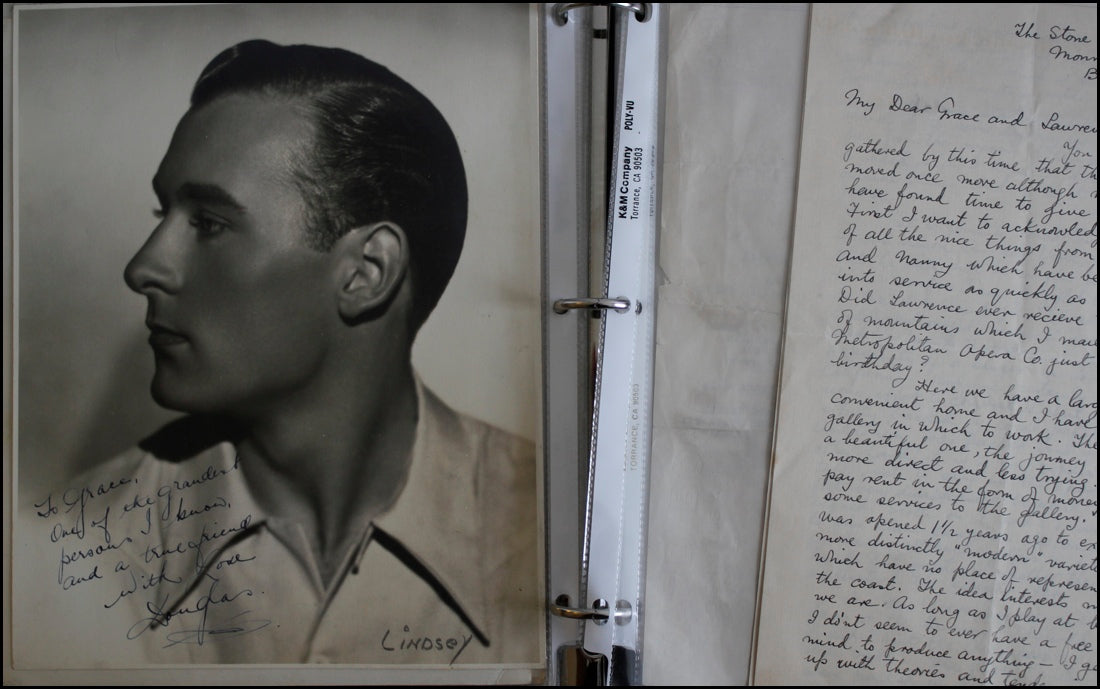 To Grace,
One of the grandest
persons I know,
and a true friend
with love
Douglas.
Lindsey
K&M Company POLY-VU
Torrance, CA 90503
TORRANCE, CA 90503
The Stone
My Dear Grace and Lawren
You
gathered by this time that th
moved once more although
have found time to give
First I want to acknowled
of all the nice things from
and Nanny which have be
into service as quickly as
Did Lawrence ever recieve
of mountains which I mai
Metropolitan Opera Co. just
birthday?
Here we have a larg
convenient home and I have
gallery in which to work. The
a beautiful one, the journey
more direct and less trying.
pay rent in the form of mone
some services to the gallery.
was opened 1½ years ago to ex
more distinctly "modern" variet
which have no place of represen
the coast. The idea interests m
we are. As long as I play at
I dont seem to ever have a free
mind to produce anything — I g
up with theories and tende